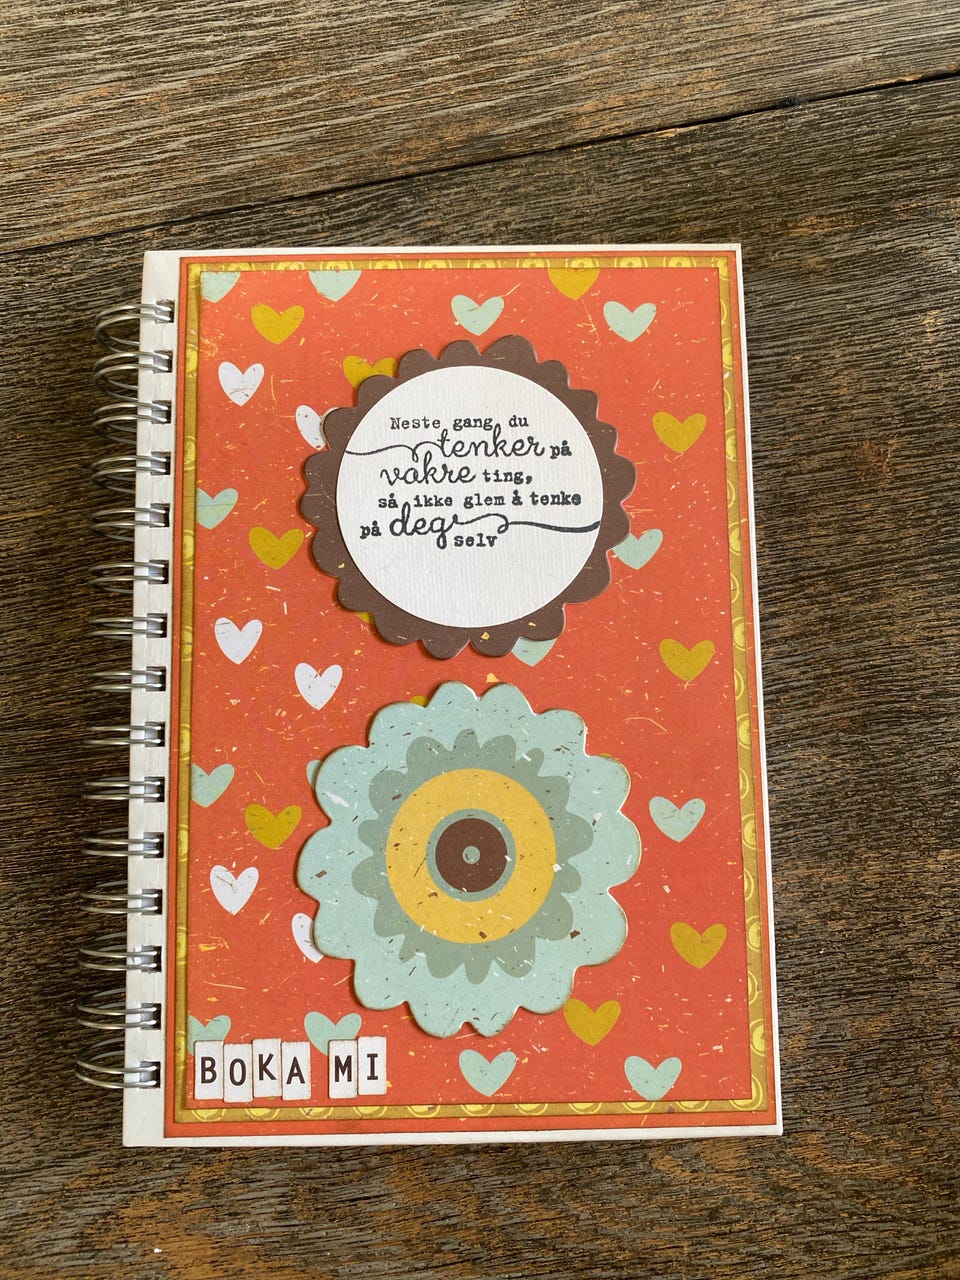 Neste gang du
tenker på
vakre ting,
så ikke glem å tenke
på deg
selv
BOKA MI